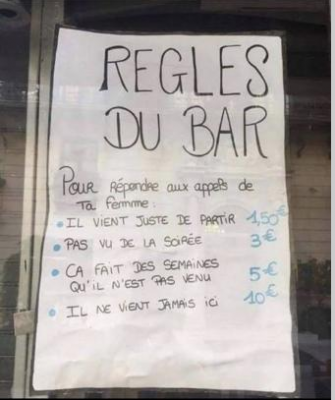 REGLES
DU BAR
POUR Répondre aux appels de
Ta femme :
• IL VIENT JUSTE DE PARTIR 1,50€
• PAS VU DE LA SOIRÉE 3€
• CA FAIT DES SEMAINES
QU'IL N'EST PAS VENU 5€
• IL NE VIENT JAMAIS ici 10€